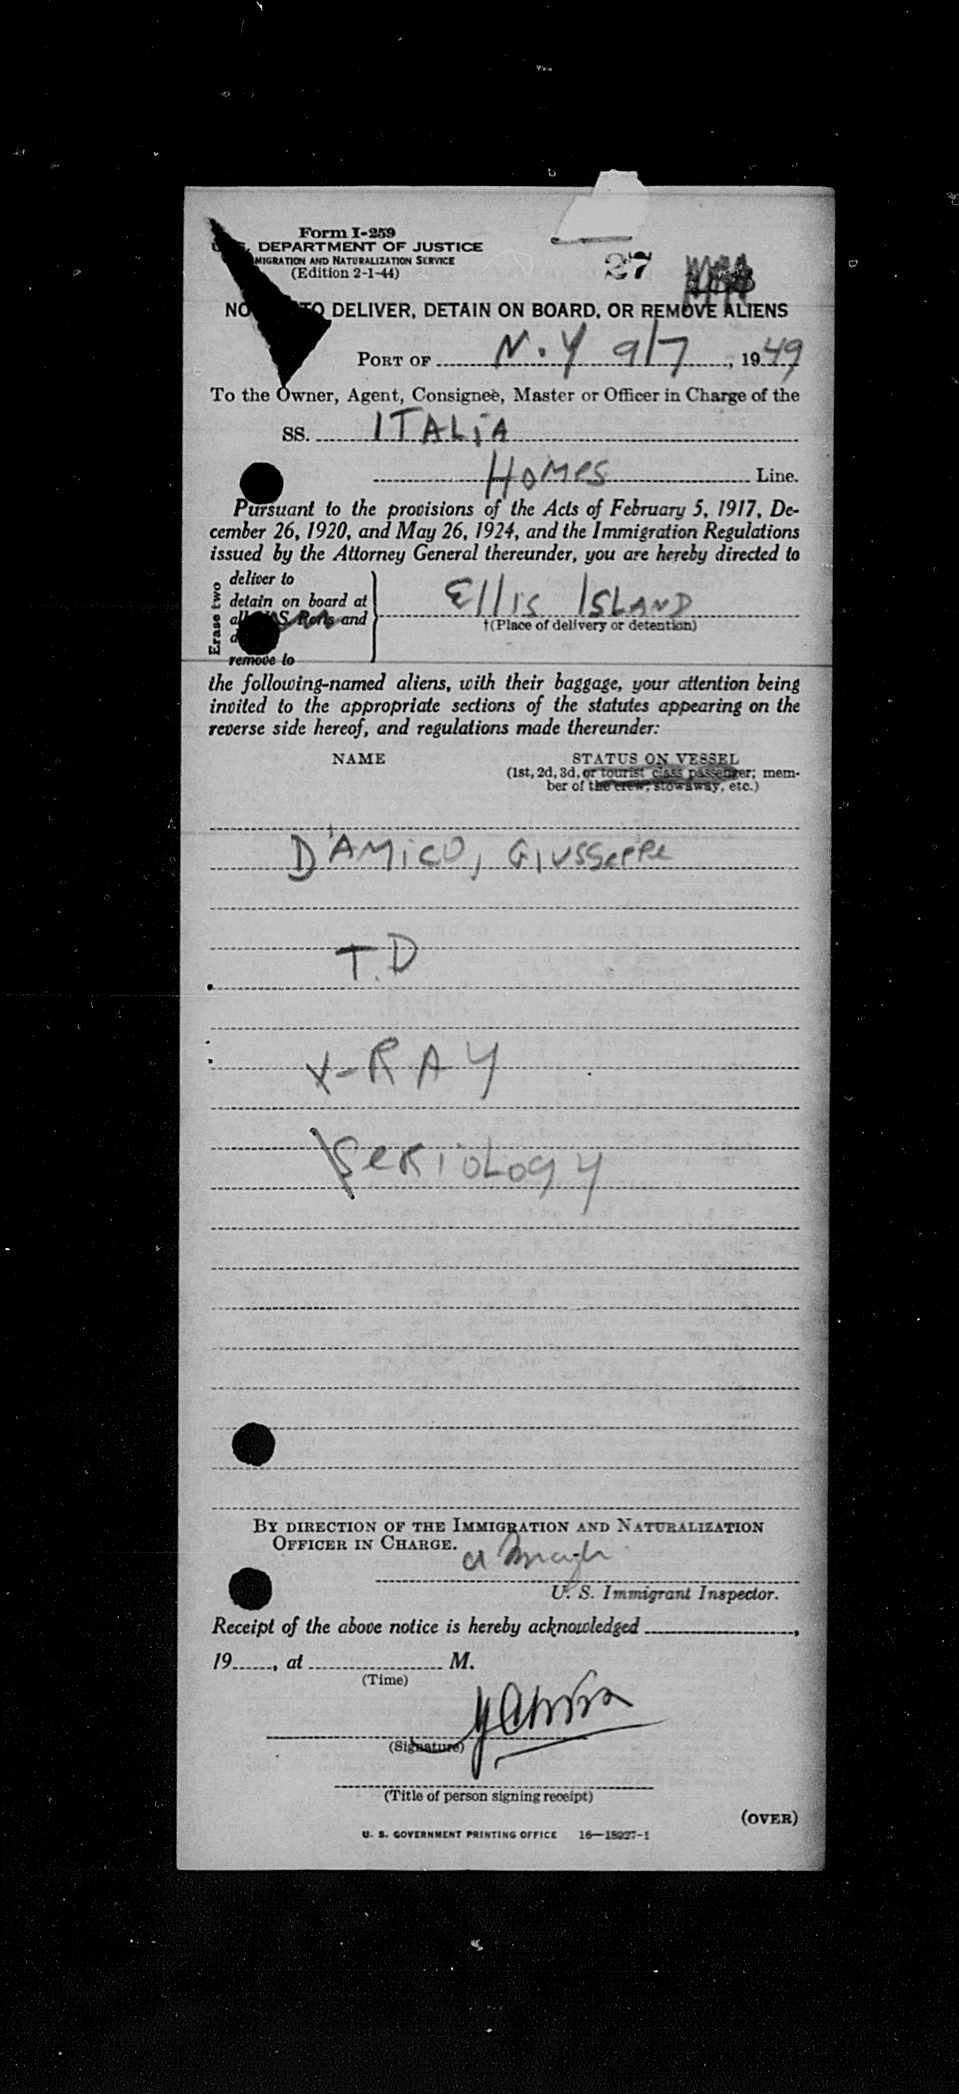 Form I-259
DEPARTMENT OF JUSTICE
MIGRATION AND NATURALIZATION SERVICE
(Edition 2-1-44)
27
NO TO DELIVER, DETAIN ON BOARD, OR REMOVE ALIENS
PORT OF N.Y 9/7, 1949
To the Owner, Agent, Consignee, Master or Officer in Charge of the
SS. ITALIA
HOMES Line.
Pursuant to the provisions of the Acts of February 5, 1917, De-
cember 26, 1920, and May 26, 1924, and the Immigration Regulations
issued by the Attorney General thereunder, you are hereby directed to
Erase two
deliver to
detain on board at
S. Ports and
remove to
Ellis ISLAND
†(Place of delivery or detention)
the following-named aliens, with their baggage, your attention being
invited to the appropriate sections of the statutes appearing on the
reverse side hereof, and regulations made thereunder:
NAME STATUS ON VESSEL
(1st, 2d, 3d, or tourist class passenger; mem-
ber of the crew; stowaway, etc.)
D'AMICO, GIUSSEPPE
T.D
X-RAY
SERIOLOGY
BY DIRECTION OF THE IMMIGRATION AND NATURALIZATION
OFFICER IN CHARGE.
U. S. Immigrant Inspector.
Receipt of the above notice is hereby acknowledged ,
19 , at M.
(Time)
(Signature)
(Title of person signing receipt)
(OVER)
U. S. GOVERNMENT PRINTING OFFICE 16—18227-1